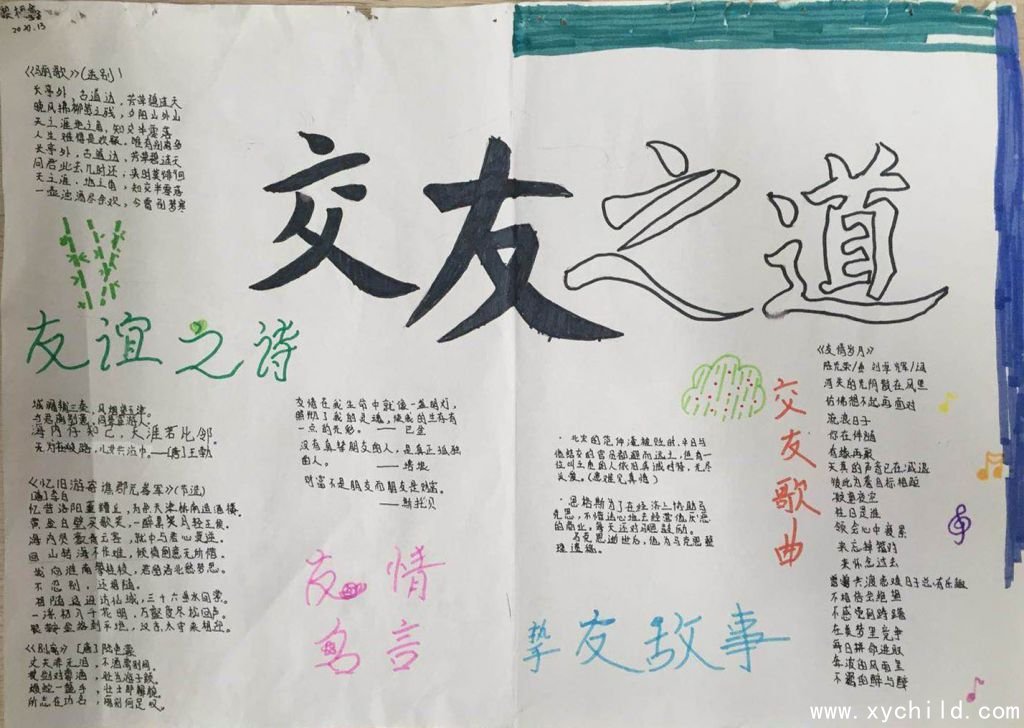 交友之道
《骊歌》(送别)
长亭外，古道边，芳草碧连天
晚风拂柳笛声残，夕阳山外山
天之涯地之角，知交半零落
人生难得是欢聚，唯有别离多
长亭外，古道边，芳草碧连天
问君此去几时还，来时莫徘徊
天之涯，地之角，知交半零落
一壶浊酒尽余欢，今宵别梦寒
友谊之诗
城阙辅三秦，风烟望五津。
与君离别意，同是宦游人。
海内存知己，天涯若比邻。
无为在歧路，儿女共沾巾。——[唐]王勃
《忆旧游寄谯郡元参军》(节选)
[唐]李白
忆昔洛阳董糟丘，为余天津桥南造酒楼。
黄金白璧买歌笑，一醉累月轻王侯。
海内贤豪青云客，就中与君心莫逆。
回山转海不作难，倾情倒意无所惜。
我向淮南攀桂枝，君留洛北愁梦思。
不忍别，还相随。
相随迢迢访仙城，三十六曲水回萦。
一溪初入千花明，万壑度尽松风声。
银鞍金络到平地，汉东太守来相迎。
《别离》[唐]陆龟蒙
丈夫非无泪，不洒离别间。
仗剑对尊酒，耻为游子颜。
蝮蛇一螫手，壮士即解腕。
所志在功名，离别何足叹。
友情在我生命中就像一盏明灯，
照彻了我的灵魂，使我的生存有
一点的光彩。——巴金
没有真挚朋友的人，是真正孤独
的人。——培根
财富不是朋友而朋友是财富。
——斯托贝
友情
名言
·北宋的范仲淹被贬时，平日与
他结交的官员都避而远之，但有一
位叫王质的人依旧真诚对待，尤尽
关爱。(患难见真情)
·恩格斯为了在经济上协助马
克思，不惜违心地去经营他厌恶
的商业，每天还对马恩鼓励。
马克思逝世后，他为马克思整
理遗稿。
挚友故事
交友歌曲
《友情岁月》
陈光荣/曲 刘卓辉/词
消失的光阴散在风里
仿佛想不起再面对
流浪日子
你在伴随
有缘再聚
天真的声音已在减退
彼此为着目标相距
凝望夜空
往日是谁
领会心中疲累
来忘掉错对
来怀念过去
曾共渡患难日子总有乐趣
不相信会绝望
不感觉到踌躇
在美梦里竞争
每日拼命进取
奔波的风雨里
不羁的醒与醉
www.xychild.com